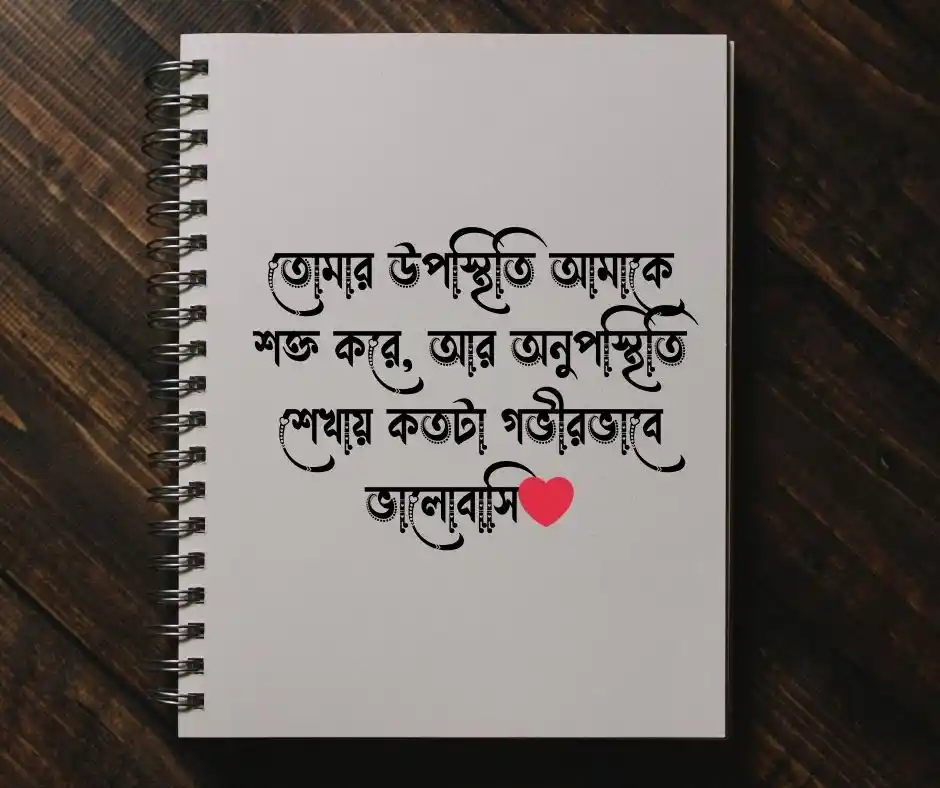 তোমার উপস্থিতি আমাকে
শক্ত করে, আর অনুপস্থিতি
শেখায় কতটা গভীরভাবে
ভালোবাসি❤️